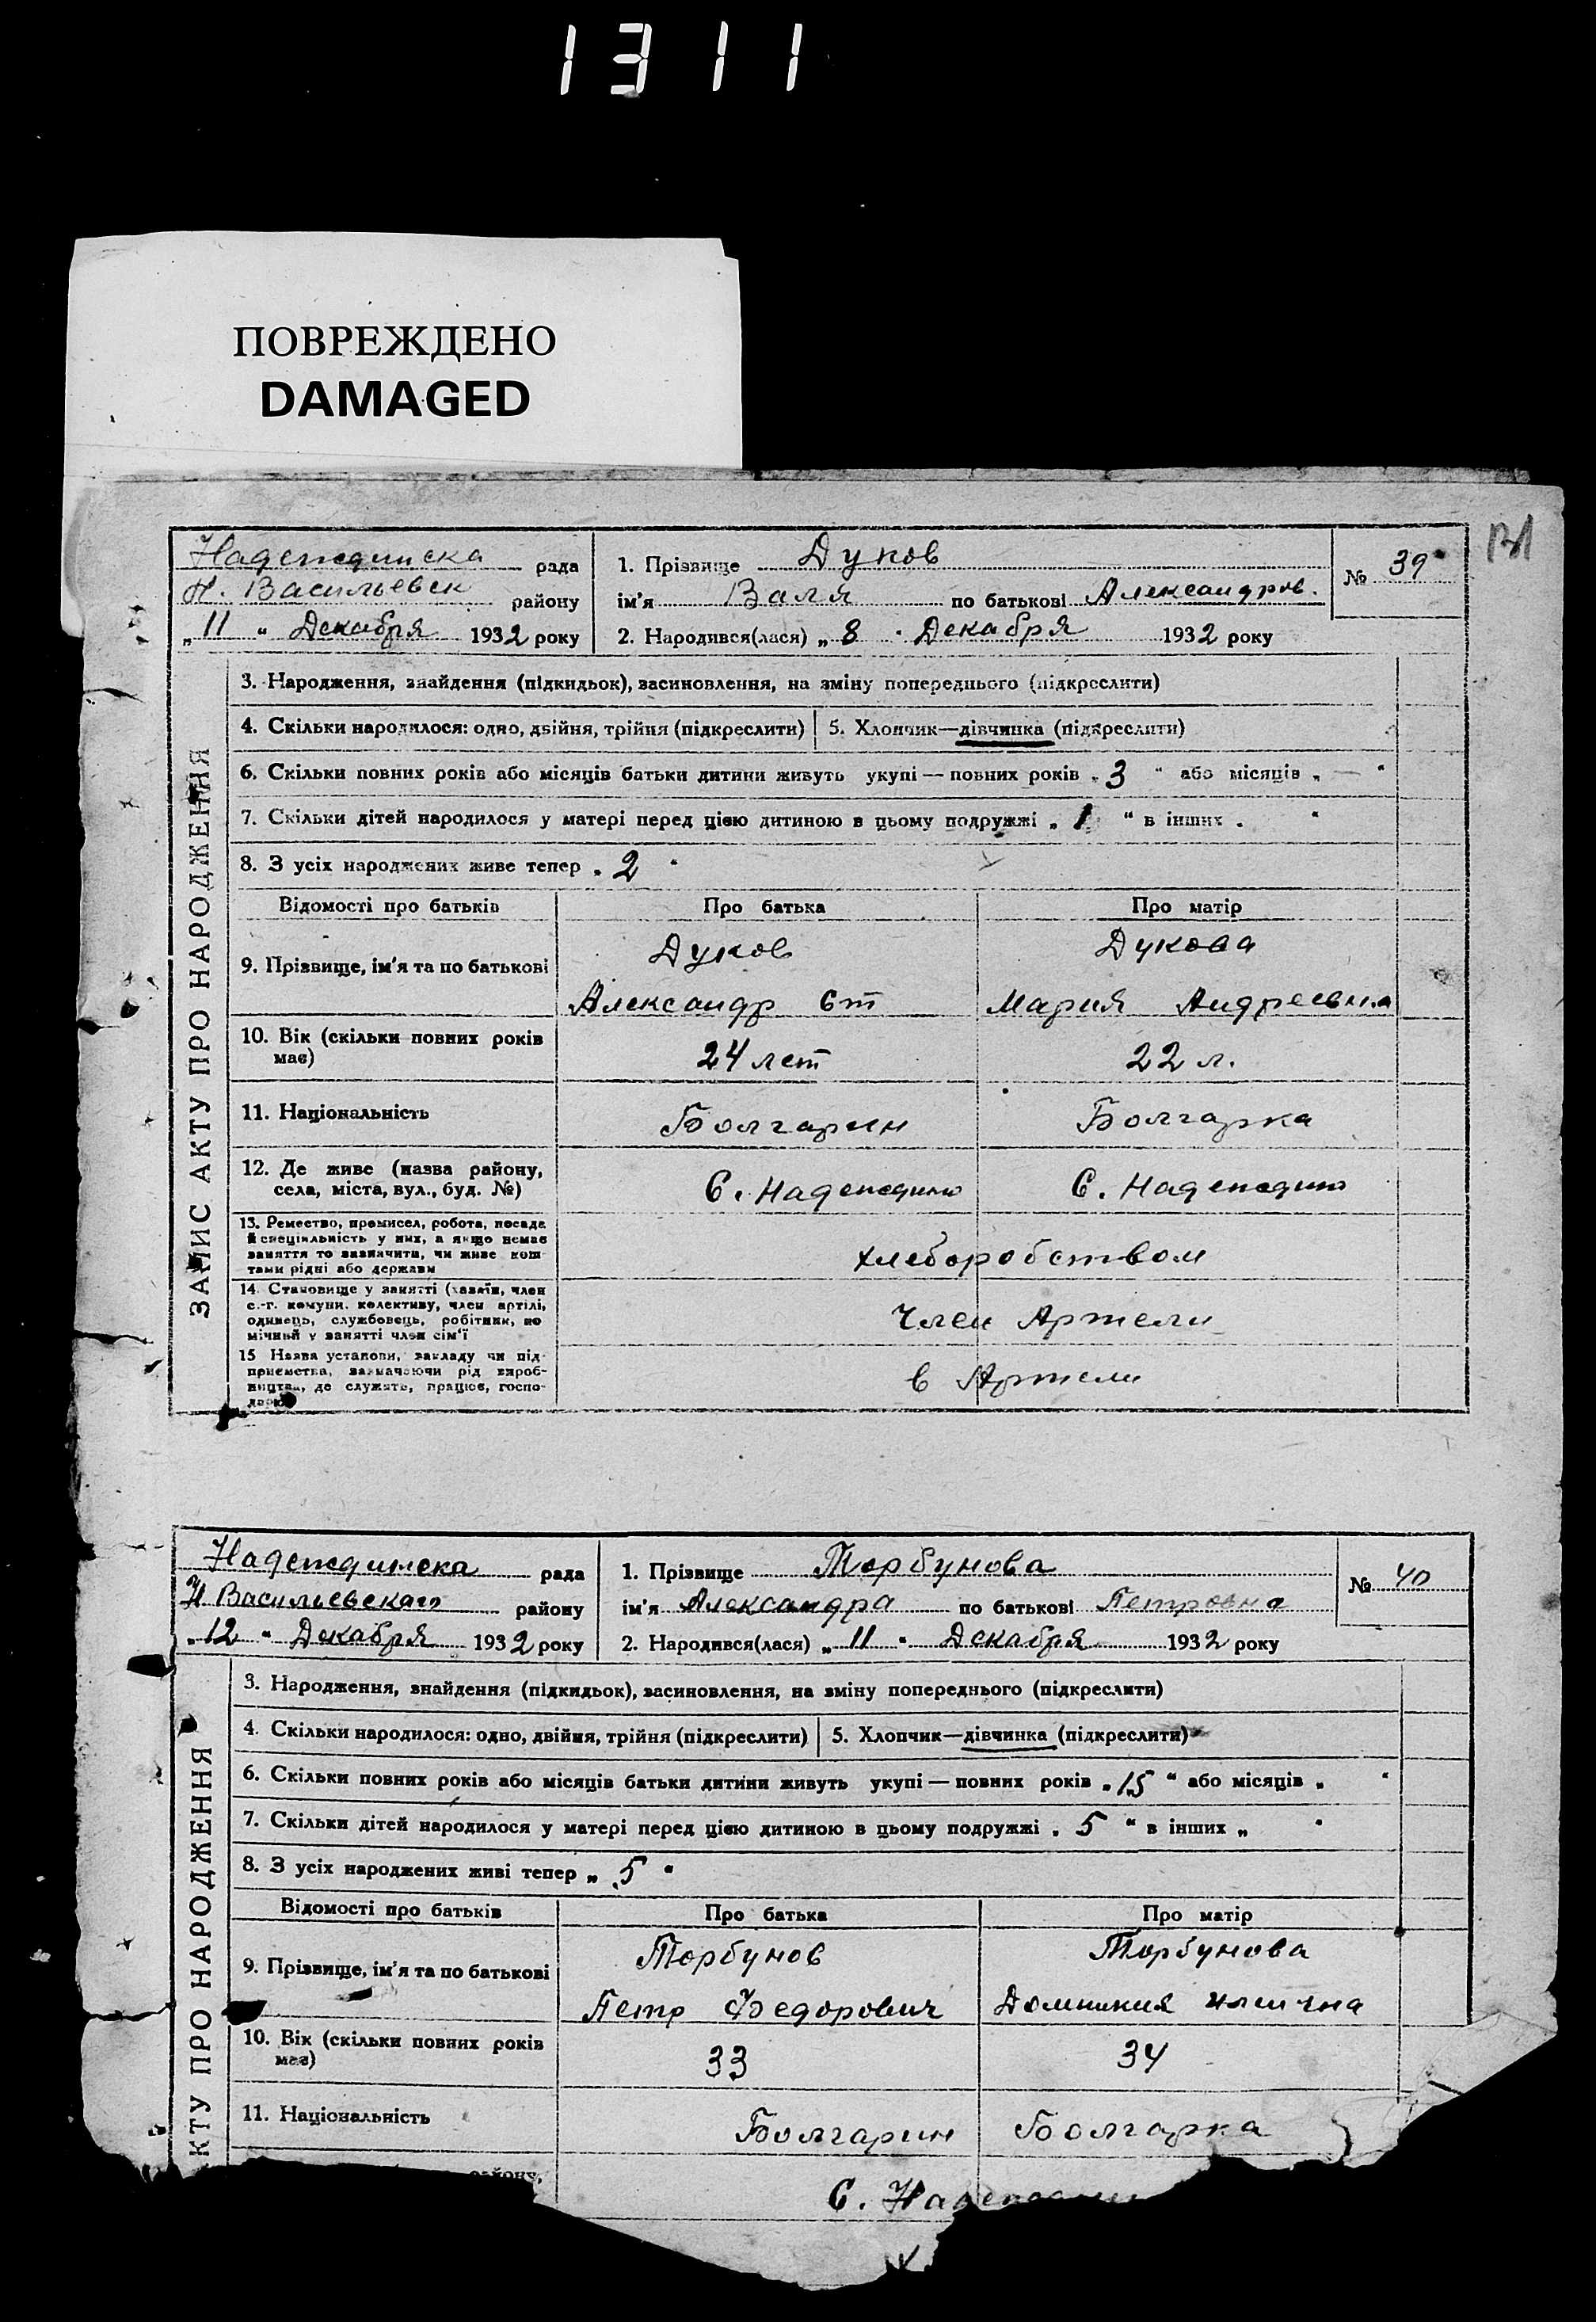 1311
ПОВРЕЖДЕНО
DAMAGED
Надеждинска рада
Н. Васильевск району
„11“ Декабря 1932 року
1. Прізвище Дуков
ім'я Валя по батькові Александров.
2. Народився(лася) „8“ Декабря 1932 року
№ 39
131
ЗАПИС АКТУ ПРО НАРОДЖЕННЯ
3. Народження, знайдення (підкидьок), засиновлення, на зміну попереднього (підкреслити)
4. Скільки народилося: одно, двійня, трійня (підкреслити) 5. Хлопчик—дівчинка (підкреслити)
6. Скільки повних років або місяців батьки дитини живуть укупі — повних років „3“ або місяців „—“
7. Скільки дітей народилося у матері перед цією дитиною в цьому подружжі „1“ в інших „ “
8. З усіх народжених живе тепер „2“
Відомості про батьків Про батька Про матір
9. Прізвище, ім'я та по батькові
Дуков Дукова
Александр Ст Мария Андреевна
10. Вік (скільки повних років має) 24 лет 22 л.
11. Національність Болгарин Болгарка
12. Де живе (назва району,
села, міста, вул., буд. №) С. Надеждино С. Надеждино
13. Ремество, промисел, робота, посада
й спеціяльність у них, а якщо немає
заняття то зазначити, чи живе кош-
тами рідні або держави
хлеборобством
14. Становище у занятті (хазяїн, член
с.-г. комуни, колективу, член артілі,
одинець, службовець, робітник, по
мічний у занятті член сім'ї
Член Артели
15 Назва установи, закладу чи під-
приємства, зазначаючи рід вироб-
ництва, де служить, працює, госпо-
дарює
в Артели
Надеждинска рада
Н Васильевскаго району
„12“ Декабря 1932 року
1. Прізвище Торбунова
ім'я Александра по батькові Петровна
2. Народився(лася) „11“ Декабря 1932 року
№ 40
КТУ ПРО НАРОДЖЕННЯ
3. Народження, знайдення (підкидьок), засиновлення, на зміну попереднього (підкреслити)
4. Скільки народилося: одно, двійня, трійня (підкреслити) 5. Хлопчик—дівчинка (підкреслити)
6. Скільки повних років або місяців батьки дитини живуть укупі — повних років „15“ або місяців „ “
7. Скільки дітей народилося у матері перед цією дитиною в цьому подружжі „5“ в інших „ “
8. З усіх народжених живі тепер „5“
Відомості про батьків Про батька Про матір
9. Прізвище, ім'я та по батькові
Торбунов Торбунова
Петр Федорович Домникия
10. Вік (скільки повних років
має) 33 34
11. Національність Болгарин Болгарка
району,
С. Надеждин